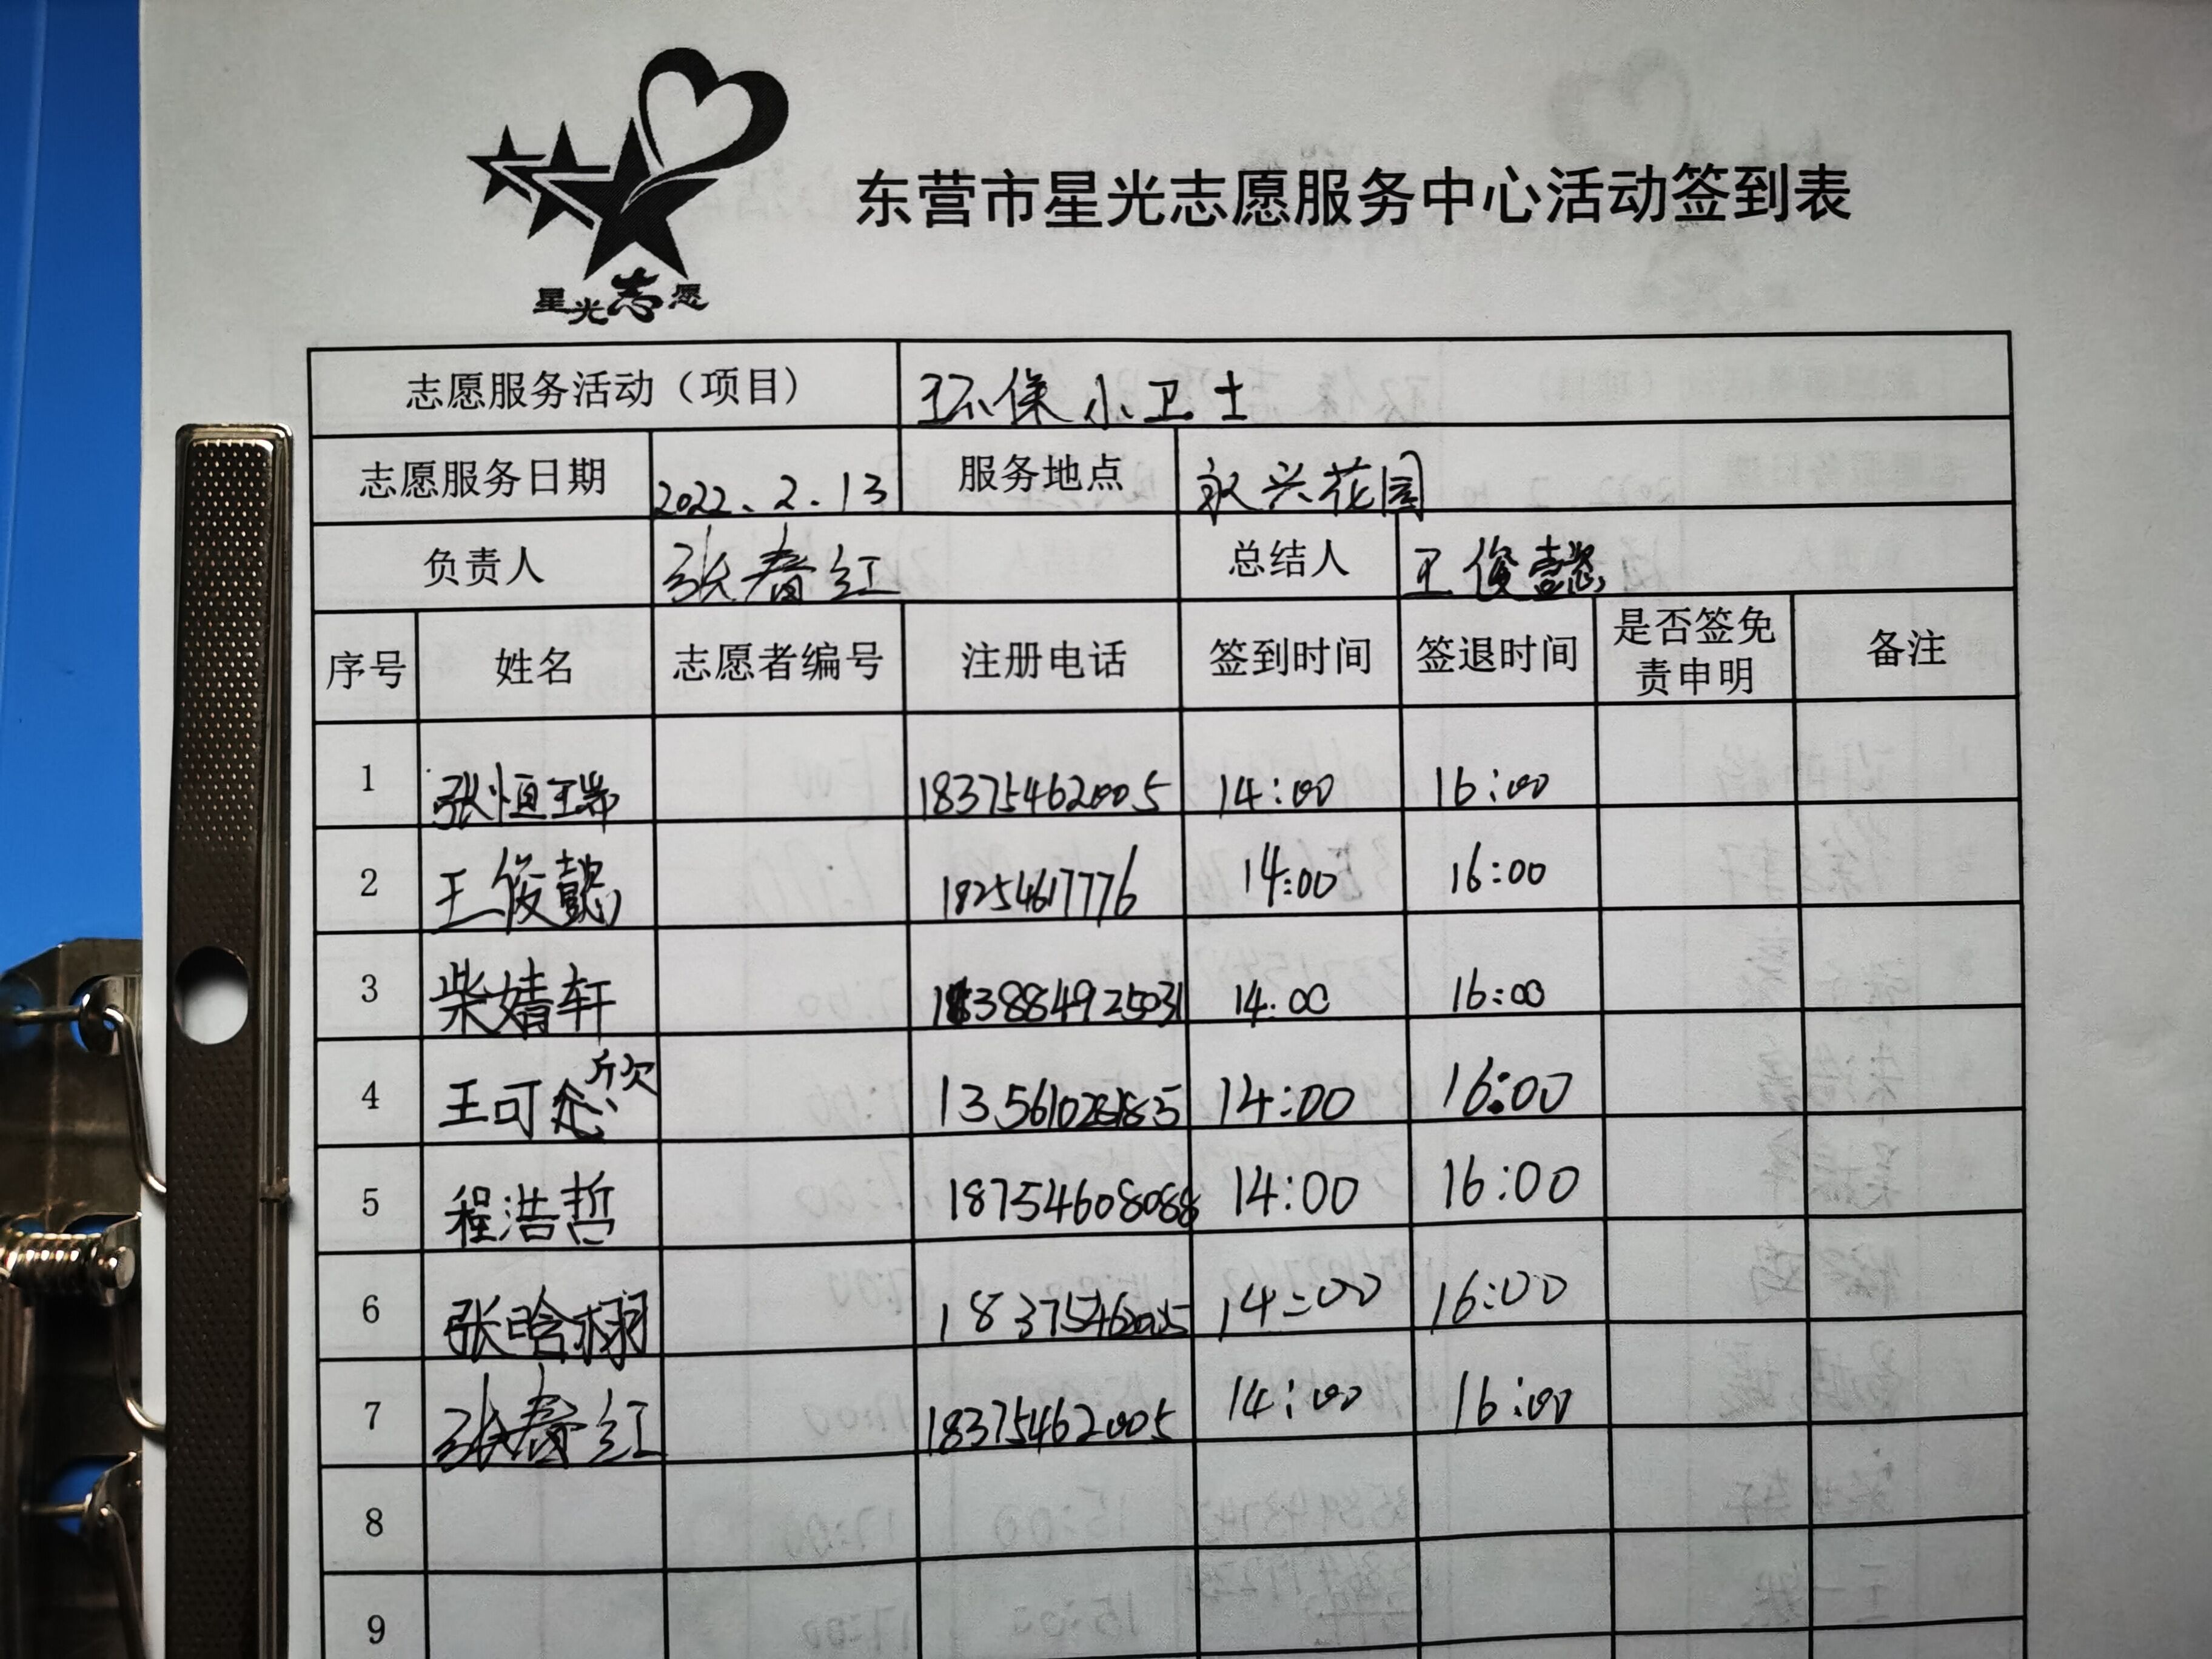 星光志愿
东营市星光志愿服务中心活动签到表
志愿服务活动（项目） 环保小卫士
志愿服务日期 2022.2.13 服务地点 永兴花园
负责人 张春红 总结人 王俊懿
序号 姓名 志愿者编号 注册电话 签到时间 签退时间 是否签免责申明 备注
1 张恒瑞 18375462005 14:00 16:00
2 王俊懿 18254617776 14:00 16:00
3 柴婧轩 14:00 16:00
4 王可欣 14:00 16:00
5 程浩哲 18754608088 14:00 16:00
6 张晗栩 18375462005 14:00 16:00
7 张春红 18375462005 14:00 16:00
8
9